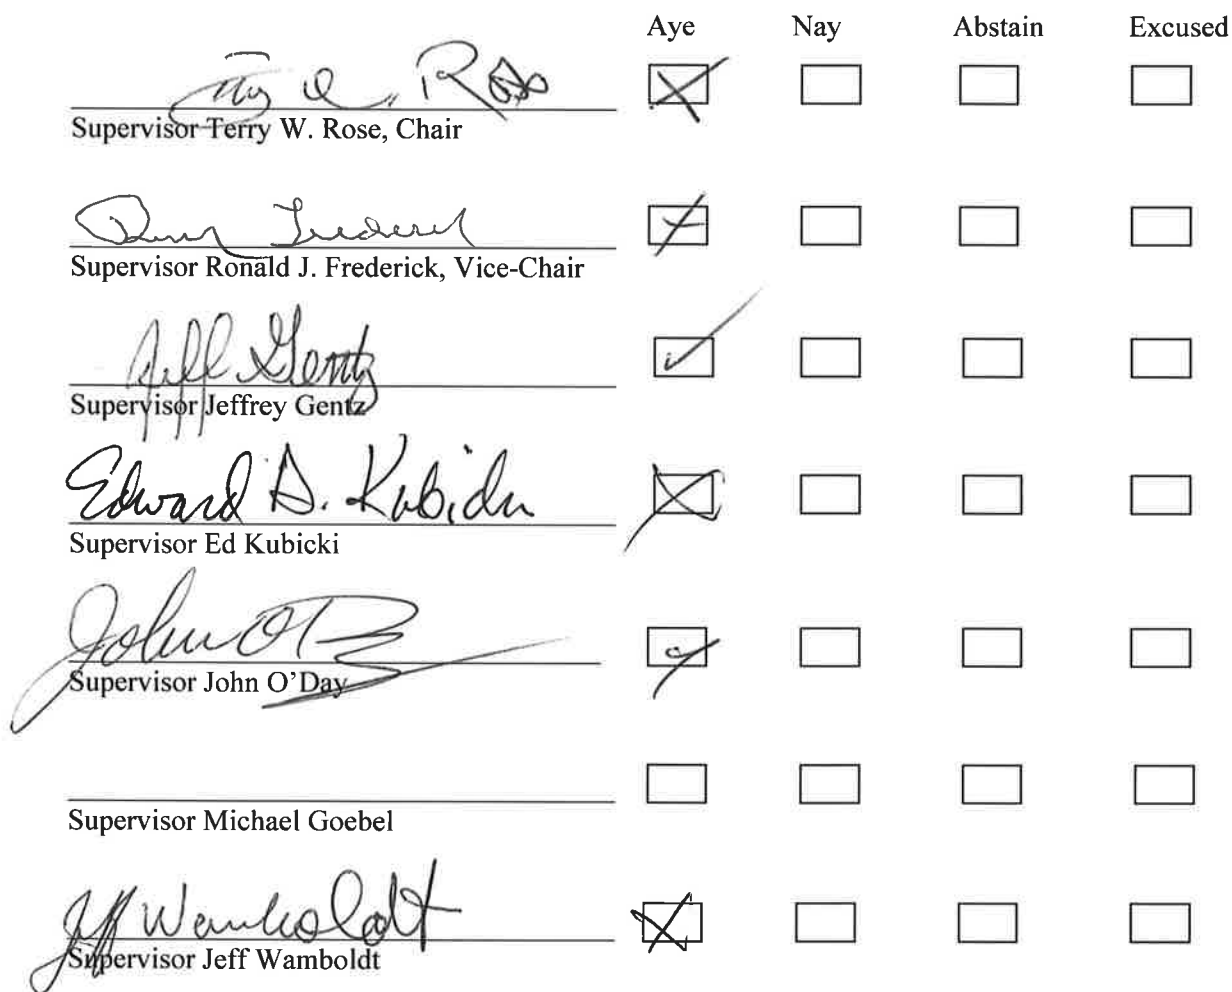 Aye Nay Abstain Excused
Supervisor Terry W. Rose, Chair
Supervisor Ronald J. Frederick, Vice-Chair
Jeff Gentz
Supervisor Jeffrey Gentz
Edward D. Kubicki
Supervisor Ed Kubicki
John O'D
Supervisor John O'Day
Supervisor Michael Goebel
Jeff Wamboldt
Supervisor Jeff Wamboldt